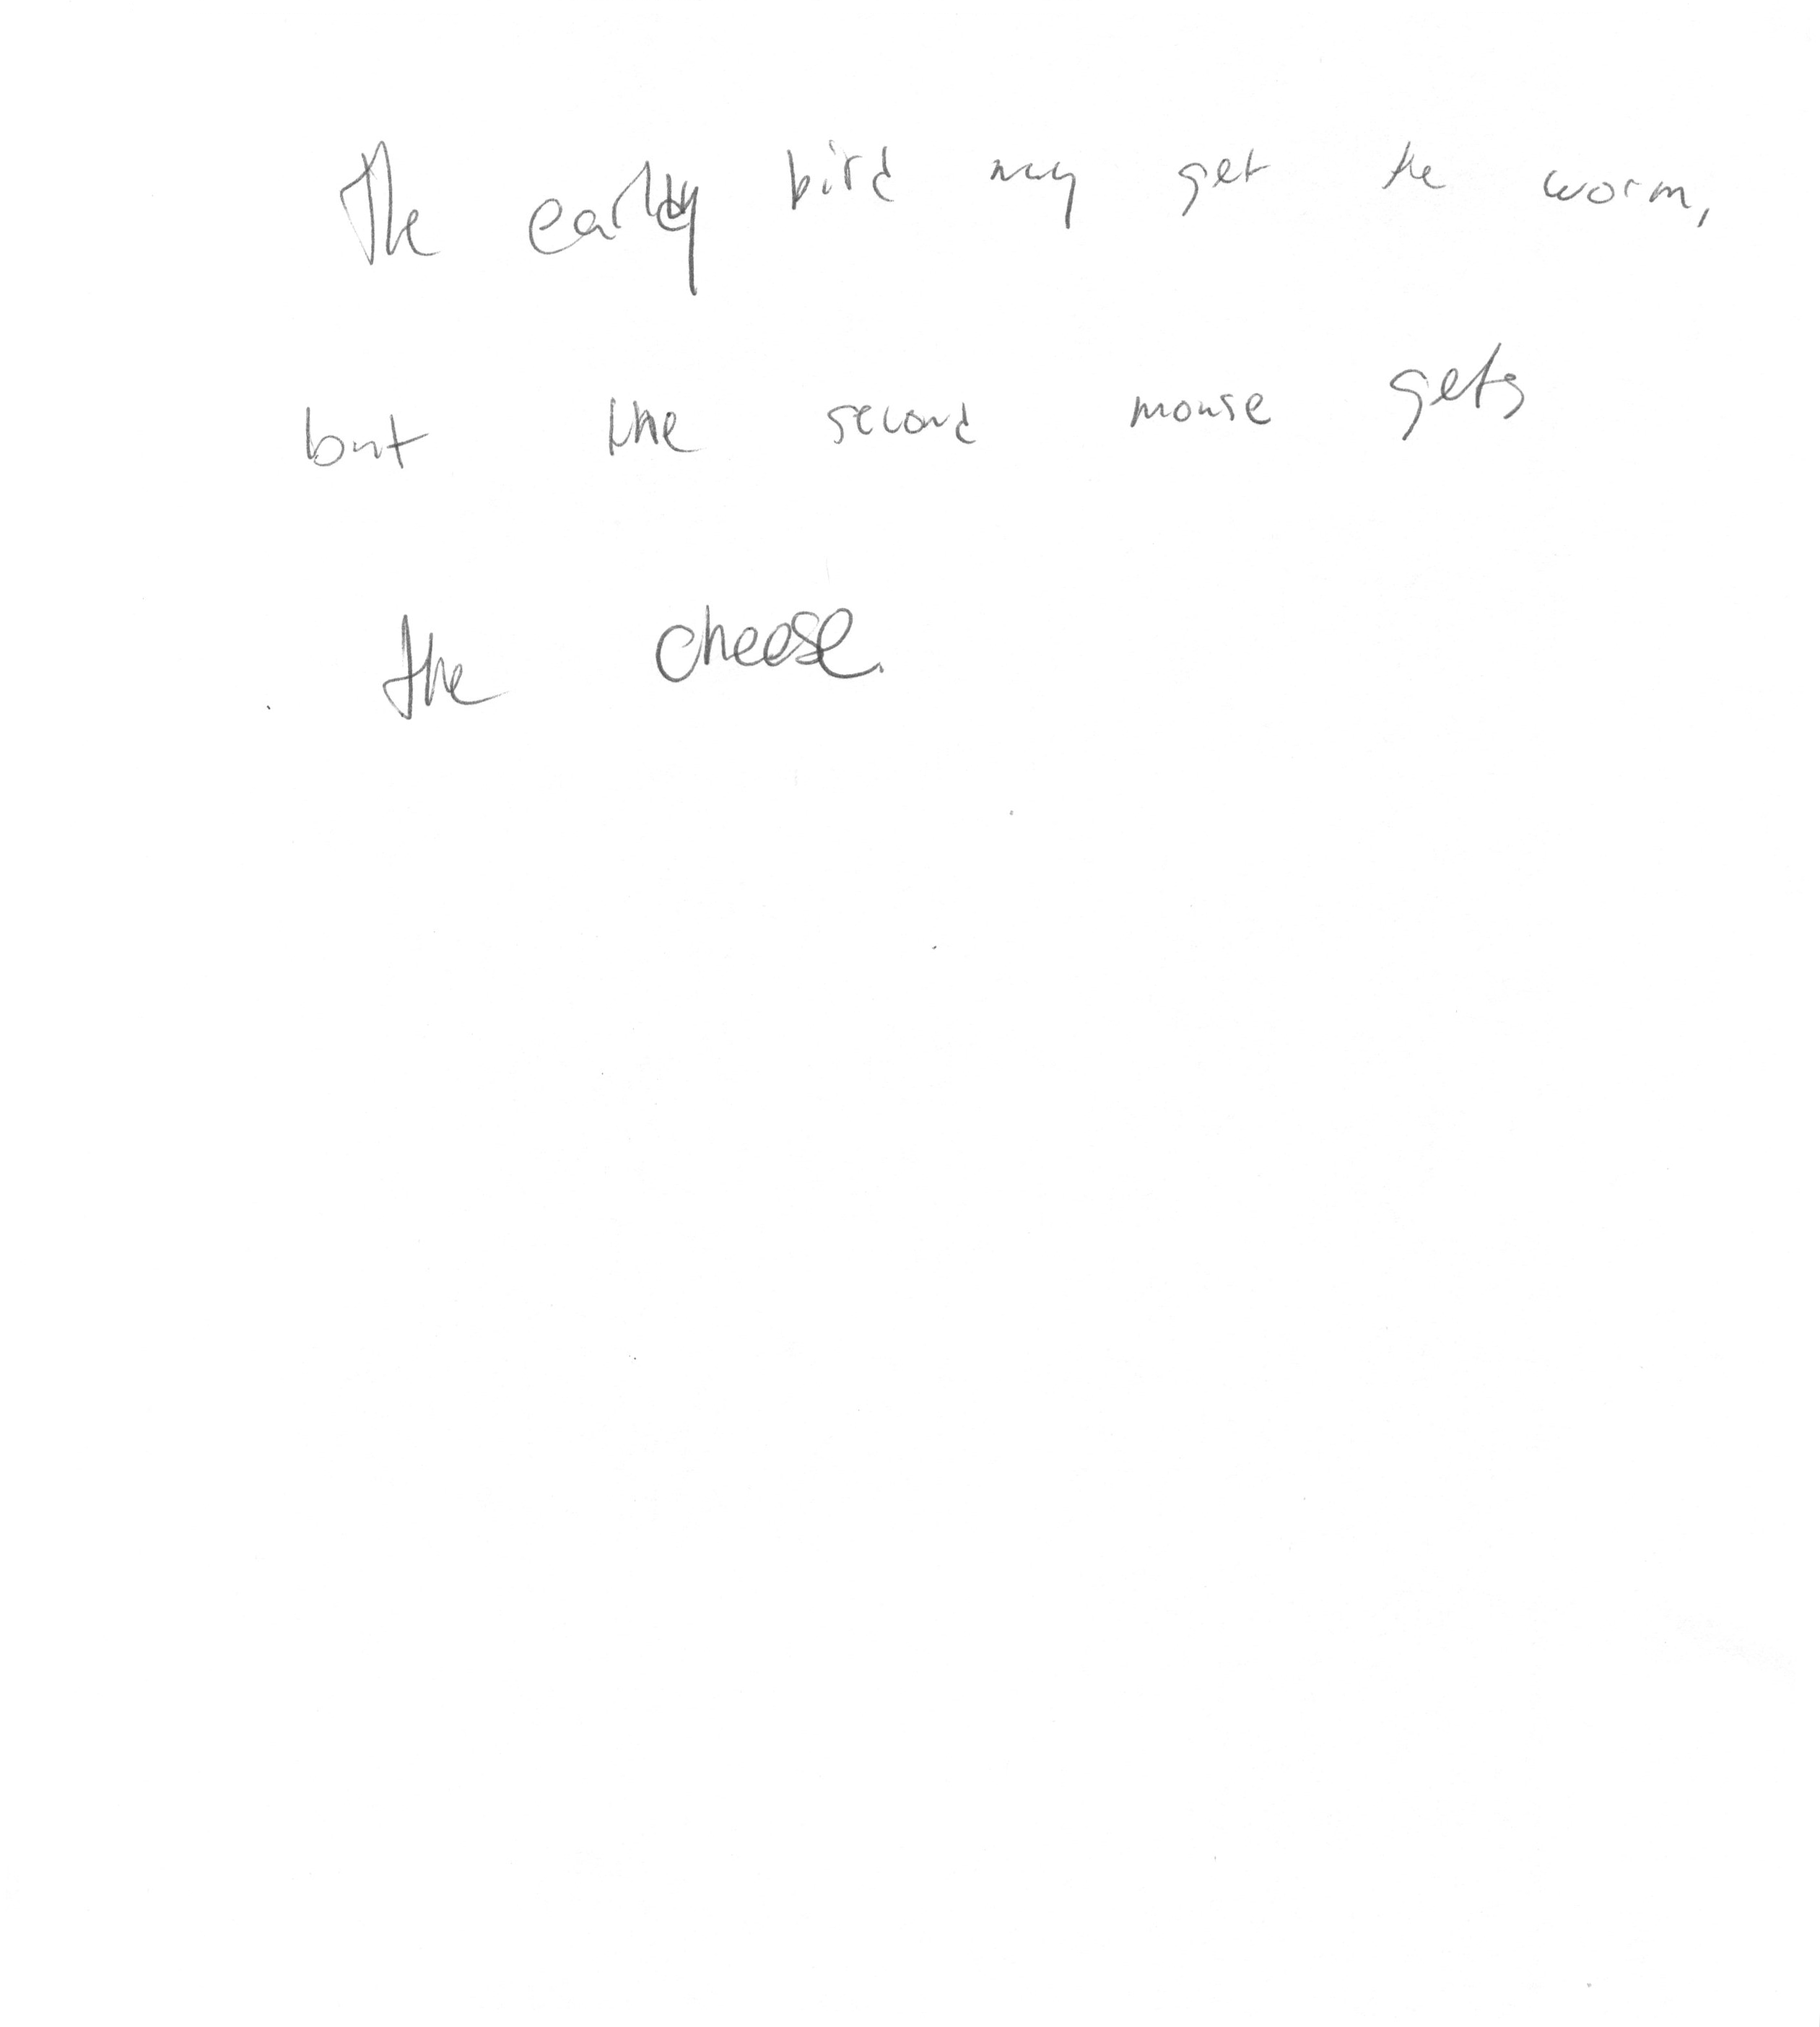 The early bird may get the worm,
but the second mouse gets
the cheese.